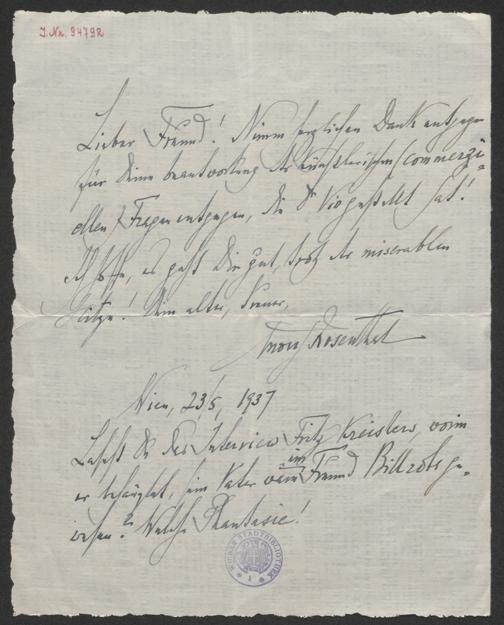 J.Nr. 94792
Lieber Freund! Nimm herzlichen Dank entgegen
für Deine Beantwortung der künstlerischen (commerzi-
ellen) Fragen entgegen, die
Ich hoffe, es geht Dir gut, trotz der miserablen
Hitze! Dein alter, treuer,
Moriz Rosenthal
Wien, 23/5, 1937
Lasest Du das Interview Fritz Kreislers, worin
er behauptet, sein Vater im Freund Billroths ge-
wesen? Welche Phantasie!
WIENER STADTBIBLIOTHEK
1